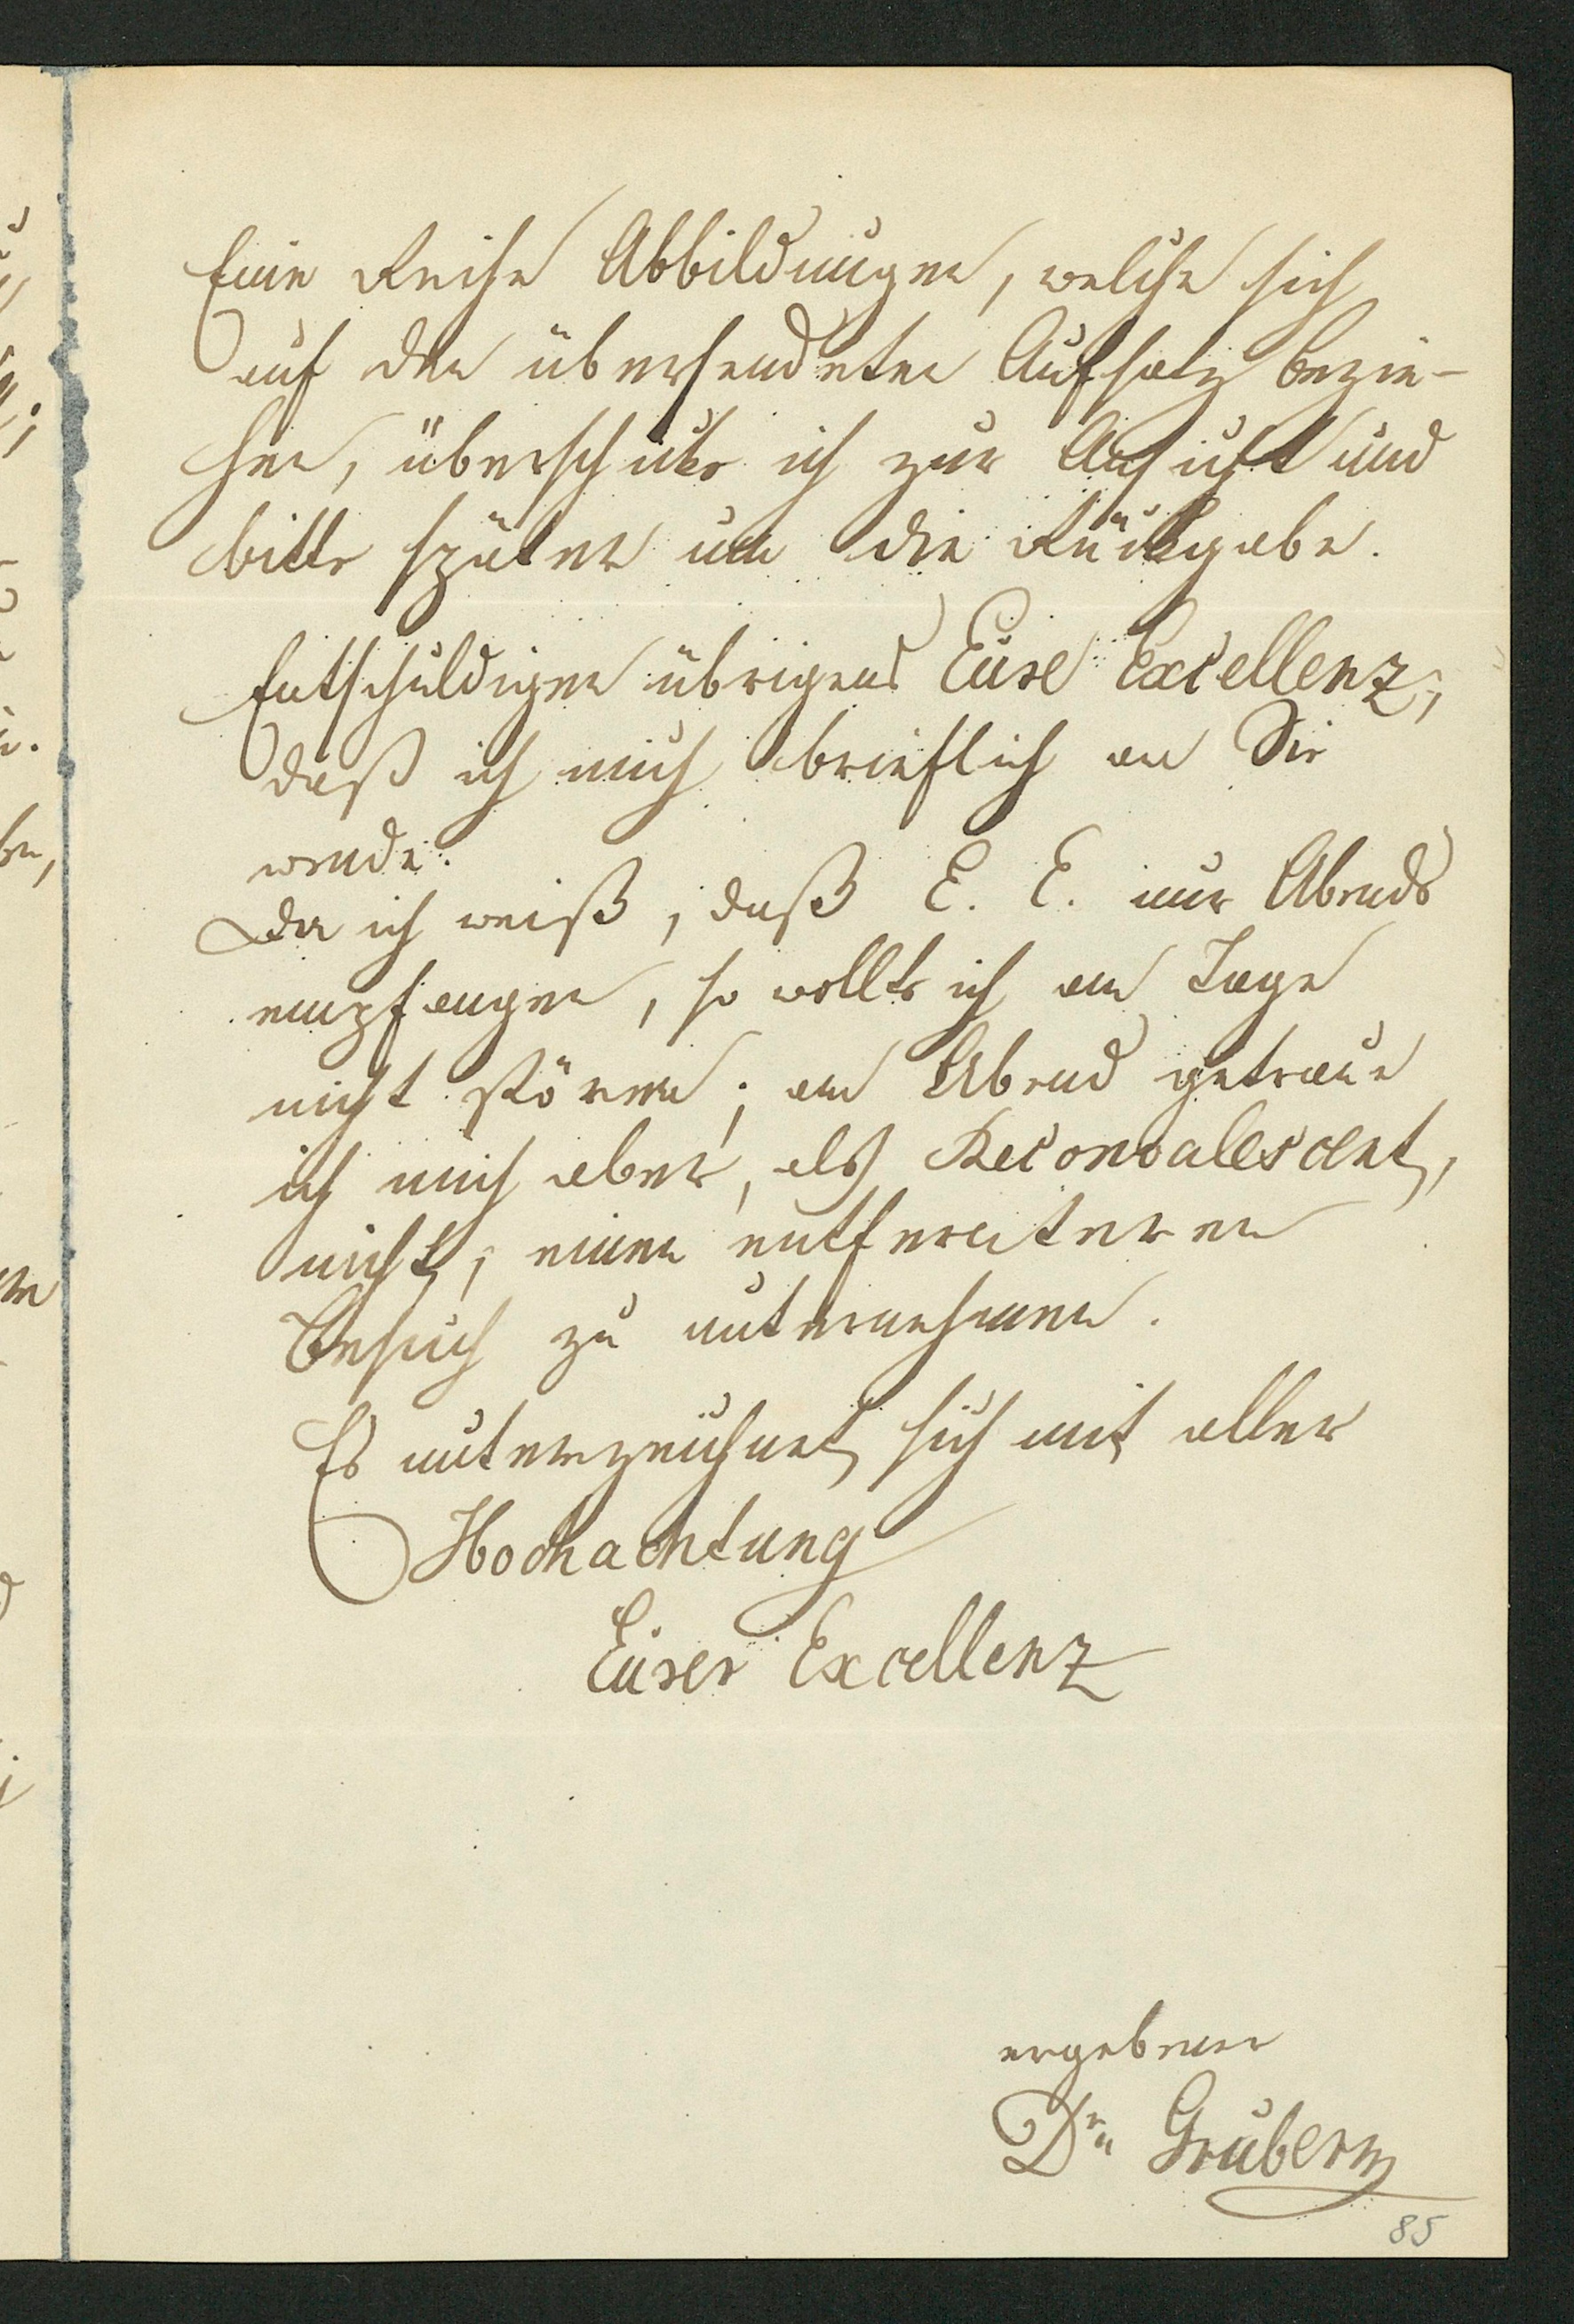 Eine Reihe Abbildungen, welche sich
auf den übersendeten Aufsatz bezie-
hen, überschicke ich zur Ansicht und
bitte später um die Rückgabe.
Entschuldigen übrigens Eure Excellenz,
daß ich mich brieflich an Sie
wende.
Da ich weiß, daß E. E. nur Abends
empfangen, so wollte ich am Tage
nicht stören; am Abend getraue
ich mich aber, als Reconvalescent,
nicht, einen entfernteren
Besuch zu unternehmen.
Es unterzeichnet sich mit aller
Hochachtung
Eurer Excellenz
ergebener
Dr. Gruber
85